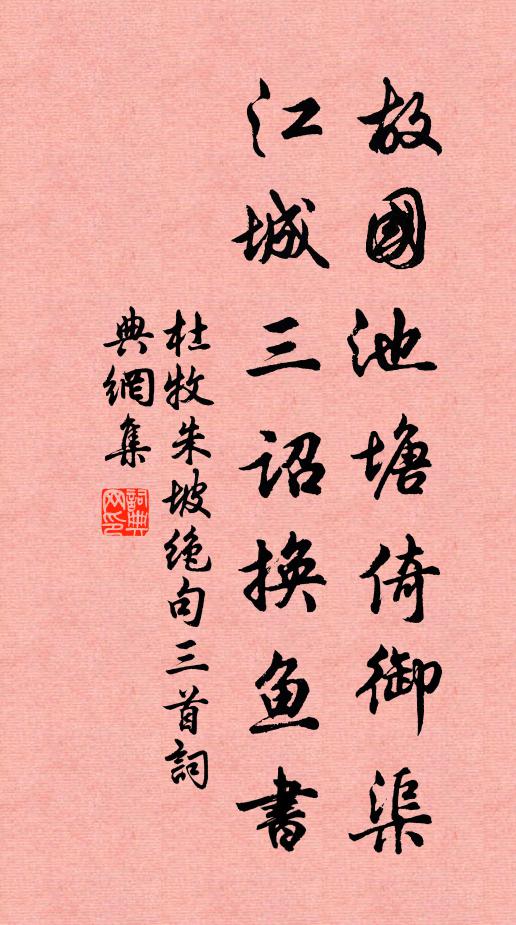 故國池塘倚御渠
江城三詔換魚書
杜牧朱坡絕句三首詞
典網集
詞典網印